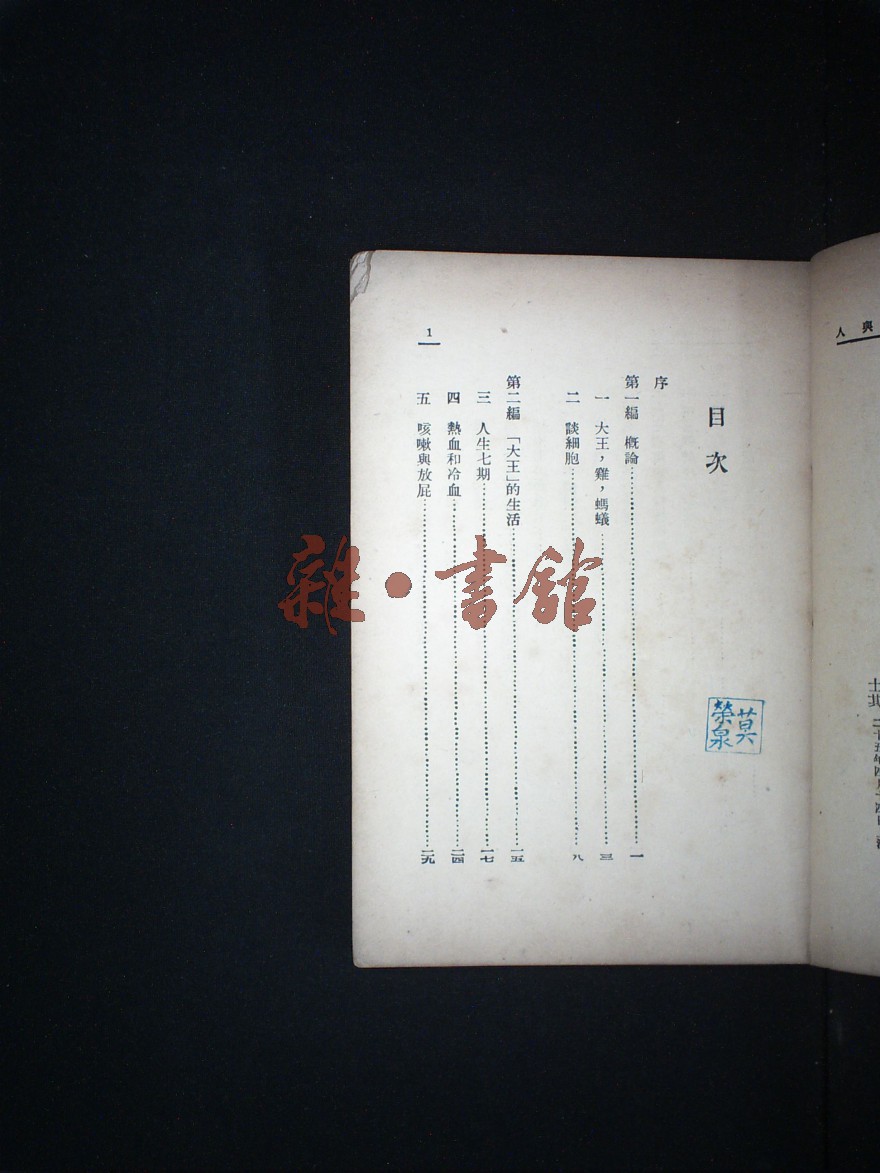 與人
目次
序
第一編 概論……一
一 大王，雞，螞蟻……三
二 談細胞……八
第二編 「大王」的生活……一五
三 人生七期……一七
四 熱血和冷血……二四
五 咳嗽與放屁……二九
1
莫榮泉
雜·書館